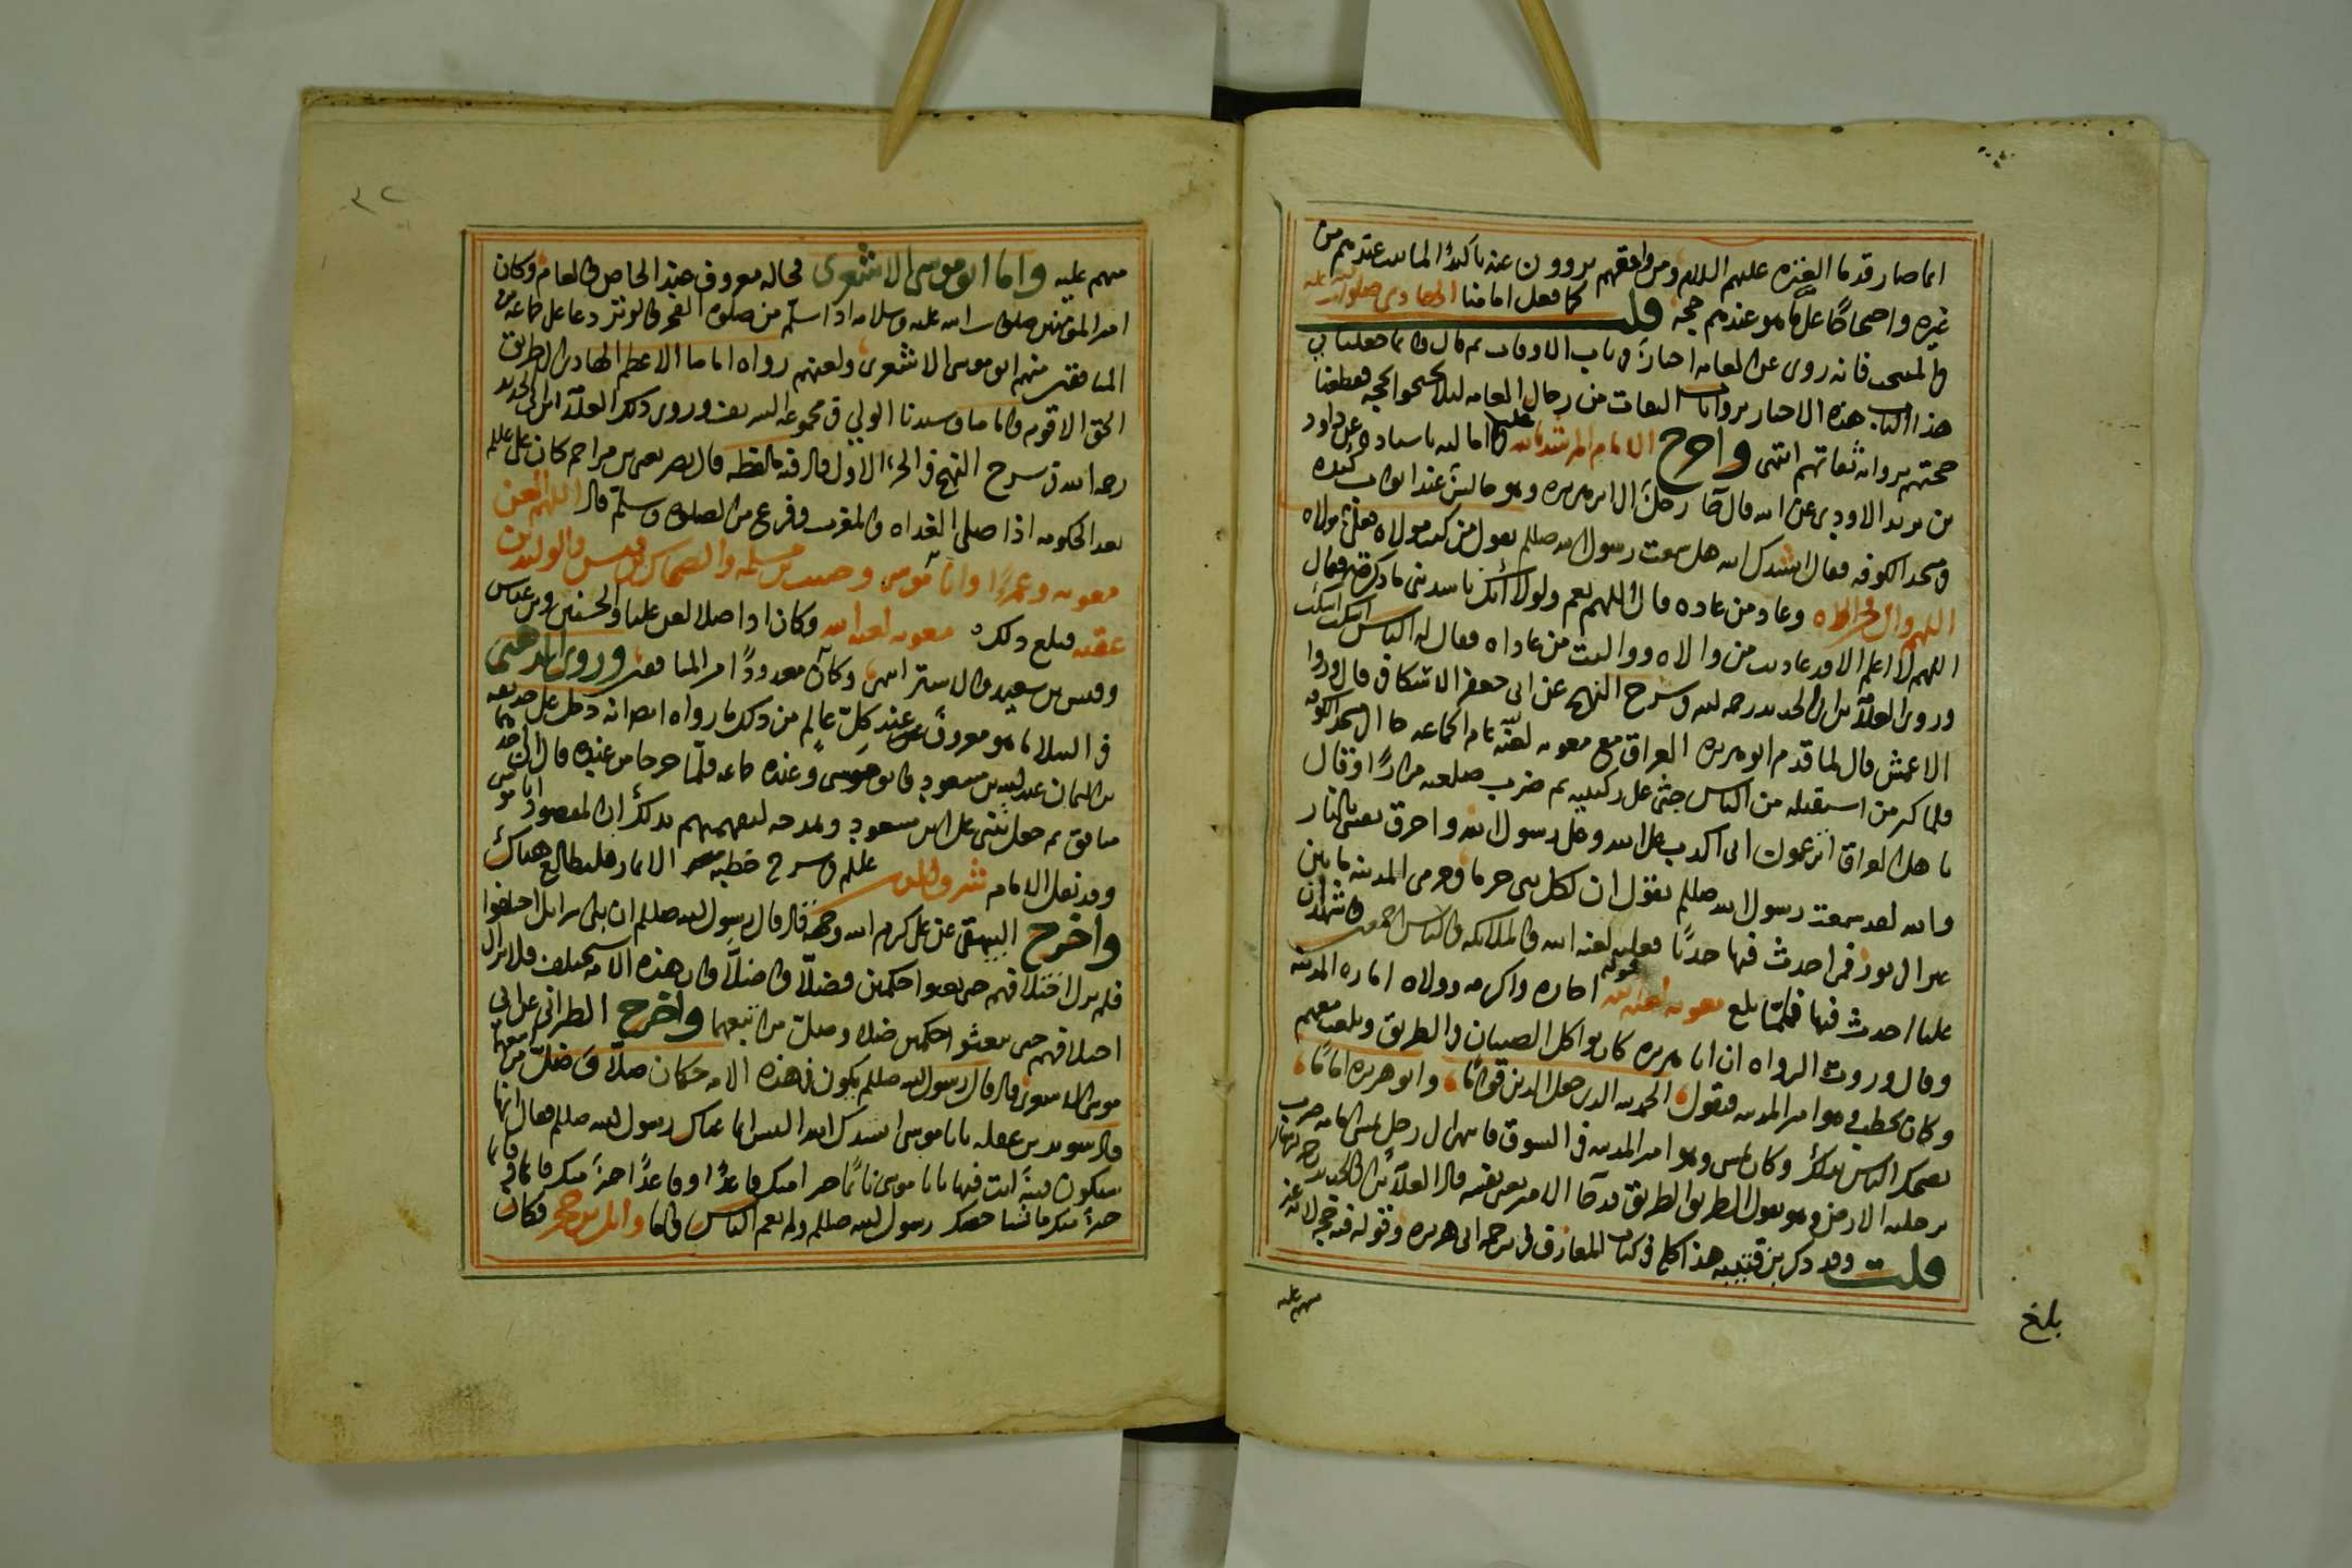 انما صار قدما العترة عليهم السلام ومن وافقهم يروون عنه تاكيدًا لما ثبت عندهم من
غيره واحتجاجًا على ما هو عندهم حجة قلت كما فعل امامنا الهادي صلوات الله عليه
في المنتخب فانه روى عن العامه اخبارًا في باب الاوقات ثم قال وانما جعلنا في
هذا الكتاب هذه الاخبار بروايات الثقات من رجال العامه لئلا يحتجوا بحجه فقطعنا
حجتهم برواية ثقاتهم انتهى واخرج الامام المرشد بالله عليلم في اماليه باسناده عن داود
بن يزيد الاودي عن ابيه قال جا رجل الى ابي هريره وهو جالس عند ابواب كنده
في مسجد الكوفه فقال انشدك الله هل سمعت رسول الله صللم يقول من كنت مولاه فعلي مولاه
اللهم وال من والاه وعاد من عاداه قال اللهم نعم ولولا انك ناشدتني ما ذكرته فقال
اللهم لا اعلم الا وقد عاديت من والاه وواليت من عاداه فقال له الناس اسكت اسكت
وروى العلامة ابن ابي الحديد رحمه الله في شرح النهج عن ابي جعفر الاسكافي قال وروا
الاعمش قال لما قدم ابو هريره العراق مع معويه لعنه عام الجماعه جا الى مسجد الكوفه
فلما كثر من استقبله من الناس جثى على ركبتيه ثم ضرب صلعته مرارًا وقال
يا اهل العراق اتزعمون اني اكذب على الله وعلى رسول الله واحرق نفسي بالنار
والله لقد سمعت رسول الله صللم يقول ان لكل نبي حرما وحرمي المدينه ما بين
عير الى ثور فمن احدث فيها حدثًا فعليه لعنة الله والملائكه والناس اجمعين واشهد ان
عليا احدث فيها فلما بلغ معويه لعنه الله قوله اجازه واكرمه وولاه امارة المدينه
وقال وروت الرواه ان ابا هريره كان يواكل الصبيان في الطريق ويلعب معهم
وكان يخطب وهو امير المدينه فيقول الحمد لله الذي جعل الدين قيامًا وابو هريره امامًا
يضحك الناس بذلك وكان يمشي وهو امير المدينه في السوق فاذا انتهى الى رجل يمشي امامه ضرب
برجليه الارض وهو يقول الطريق الطريق قد جا الامير يعني نفسه قال العلامة ابن ابي الحديد رحمه الله تعالى
قلت وقد ذكر بن قتيبه هذا كله في كتاب المعارف في ترجمة ابي هريره وقوله فيه حجه لانه غير
متهم عليه
بلغ
متهم عليه واما ابو موسى الاشعري فحاله معروف عند الخاص والعام وكان
امير المومنين صلوات الله عليه وسلامه اذا سلم من صلوة الفجر والوتر دعا على جماعه من
المنافقين منهم ابو موسى الاشعري ولعنهم رواه امامنا الاعظم الهادي الى الطريق
الحق الاقوم وامامنا وسيدنا الولي في مجموعه الشريف وروى ذلك العلامة ابن ابي الحديد
رحمه الله في شرح النهج في الجزء الاول قال فيه ما لفظه قال نصر يعني بن مزاحم كان علي عليلم
بعد الحكومه اذا صلى الغداه والمغرب وفرغ من الصلوة وسلم قال اللهم العن
معويه وعمرًا وابا موسى وحبيب بن مسلمه والضحاك بن قيس والوليد بن
عقبه فبلغ ذلك معويه لعنه الله وكان اذا صلا لعن عليا والحسنين وبن عباس
وقيس بن سعد والاشتر انتهى وكان معدودًا من المنافقين وروى الذهبي
في النبلا ما هو معروف عند كل عالم من ذلك ما رواه ايضا انه دخل على حذيفه
بن اليمان عبد الله بن مسعود وابو موسى وعنده جماعه فلما خرجا من عنده قال ان احدهما
منافق ثم جعل يثني على ابن مسعود ويمدحه ليفهمهم بذلك ان المقصود ابا موسى
وقد نقل الامام شرف الدين عليلم في شرح خطبة الاثمار فليطالع هناك
واخرج البيهقي عن علي كرم الله وجهه قال قال رسول الله صللم ان بني اسرايل اختلفوا
فلم يزل اختلافهم حتى بعثوا حكمين فضلّا واضلّا وان هذه الامه ستختلف فلا يزال
اختلافهم حتى يبعثوا حكمين ضلا وضل من اتبعهما واخرج الطبراني عن ابي
موسى الاشعري قال قال رسول الله صللم يكون في هذه الامه حكمان ضالان ضال من تبعهما
قال سويد بن غفله يا ابا موسى انشدك الله اليس انما عناك رسول الله صللم فقال انها
ستكون فتنة انت فيها يا ابا موسى نائمًا خير منك قاعدًا وقاعدًا خيرً منك قائما وقائما
خيرً منك ماشيا فخصك رسول الله صللم ولم يعم الناس واما وائل بن حجر فكان